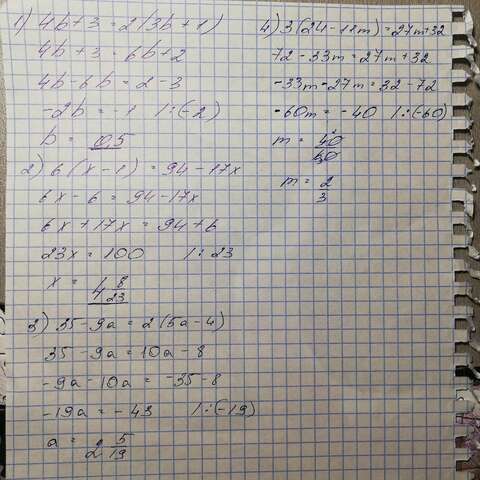 1) 4b+3=2(3b+1)
4b+3=6b+2
4b-6b=2-3
-2b=-1 |:(-2)
b=0,5
2) 6(x-1)=94-17x
6x-6=94-17x
6x+17x=94+6
23x=100 |:23
x=4 8/23
3) 35-9a=2(5a-4)
35-9a=10a-8
-9a-10a=-35-8
-19a=-43 |:(-19)
a=2 5/19
4) 3(24-12m)=27m+32
72-33m=27m+32
-33m-27m=32-72
-60m=-40 |:(-60)
m=40/60
m=2/3